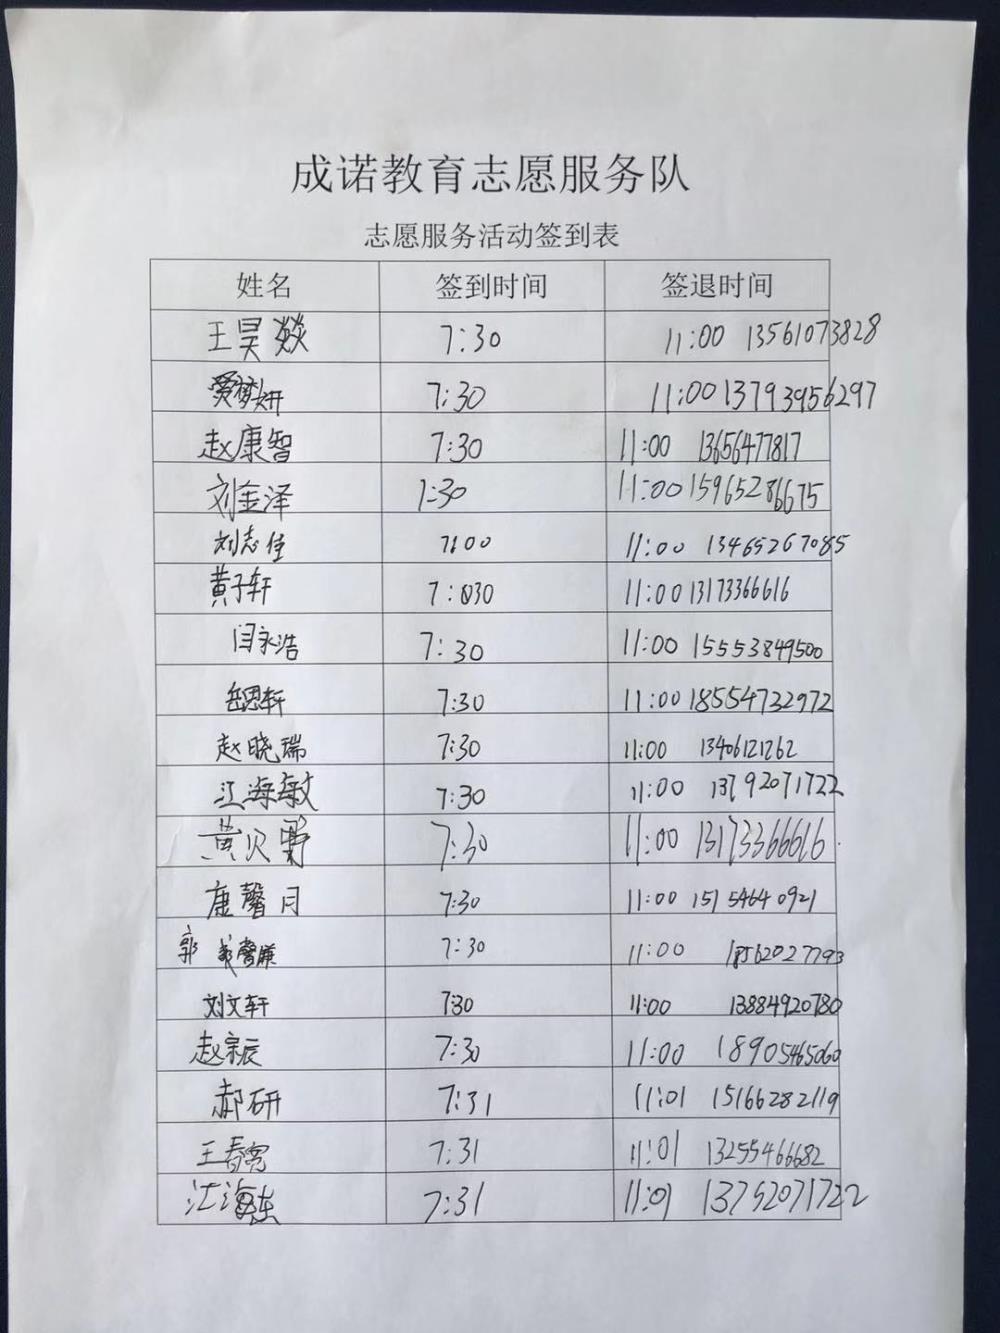 成诺教育志愿服务队
志愿服务活动签到表
姓名 签到时间 签退时间
王昊燚 7:30 11:00 13561073828
妍 7:30 11:00 13793956297
赵康智 7:30 11:00 13656477817
刘金泽 7:30 11:00 15965286675
刘志佳 7:00 11:00 13465267085
黄子轩 7:030 11:00 13173366616
闫永浩 7:30 11:00 15553849500
岳思轩 7:30 11:00 18554732972
赵晓瑞 7:30 11:00 13406121262
江海敏 7:30 11:00 13792071722
黄 7:30 11:00 13173366616
康馨月 7:30 11:00 15154640921
郭 馨 7:30 11:00 18562027793
刘文轩 7:30 11:00 13884920780
赵宗辰 7:30 11:00 18905465060
郝研 7:31 11:01 15166282119
王春亮 7:31 11:01 13255466682
江海东 7:31 11:01 13792071722